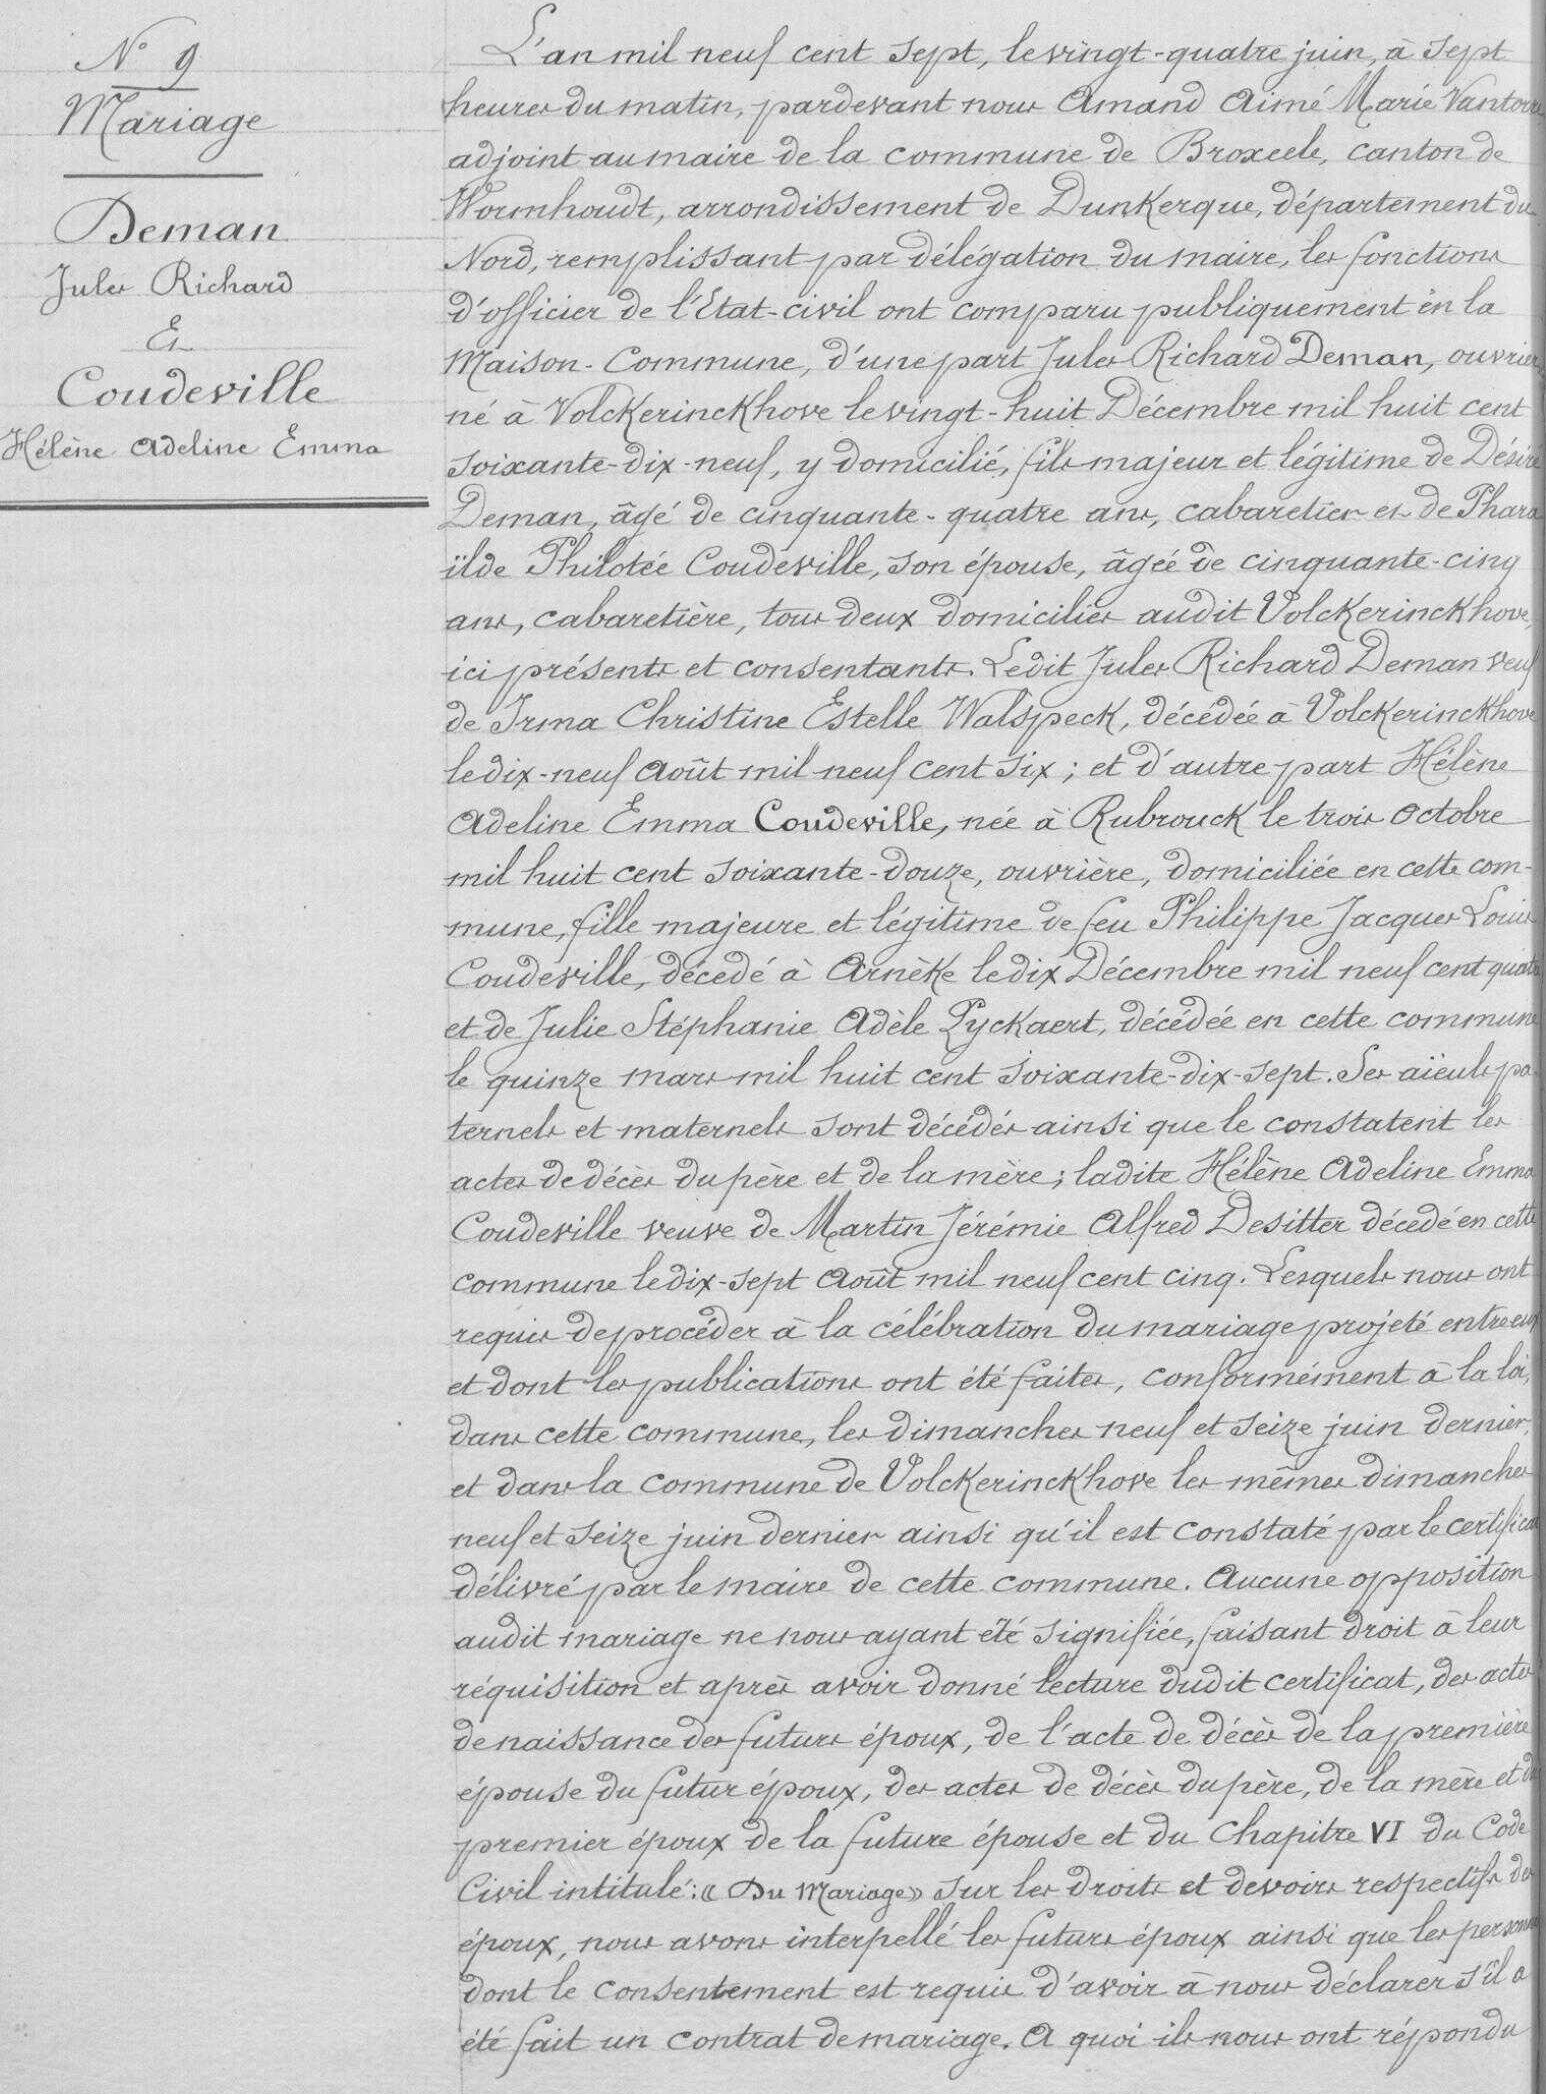 N° 9
Mariage
Deman
Jules Richard
Et
Coudeville
Hélène Adeline Emma
L'an mil neuf cent sept, le vingt-quatre juin, à sept
heures du matin, pardevant nous Amand Aimé Marie Vantorre
adjoint au maire de la commune de Broxeele, canton de
Wormhoudt, arrondissement de Dunkerque, département du
Nord, remplissant par délégation du maire, les fonctions
d'officier de l'Etat-civil ont comparu publiquement en la
Maison-Commune, d'une part Jules Richard Deman, ouvrier
né à Volckerinckhove le vingt-huit Décembre mil huit cent
soixante-dix-neuf, y domicilié, fils majeur et légitime de Désiré
Deman, âgé de cinquante-quatre ans, cabaretier et de Phara
ïlde Philotée Coudeville, son épouse, âgée de cinquante-cinq
ans, cabaretière, tous deux domiciliés audit Volckerinckhove,
ici présents et consentants. Ledit Jules Richard Deman veuf
de Irma Christine Estelle Walspeck, décédée à Volckerinckhove
le dix-neuf Août mil neuf cent six ; et d'autre part Hélène
Adeline Emma Coudeville, née à Rubrouck le trois Octobre
mil huit cent soixante-douze, ouvrière, domiciliée en cette com-
mune, fille majeure et légitime de feu Philippe Jacques Louis
Coudeville, décédé à Arnèke le dix Décembre mil neuf cent quatre
et de Julie Stéphanie Adèle Pyckaert, décédée en cette commune
le quinze mars mil huit cent soixante-dix-sept. Ses aïeuls pa-
ternels et maternels sont décédés ainsi que le constatent les
actes de décès du père et de la mère ; ladite Hélène Adeline Emma
Coudeville veuve de Martin Jérémie Alfred Desitter décédé en cette
commune le dix-sept Août mil neuf cent cinq. Lesquels nous ont
requis de procéder à la célébration du mariage projeté entre eux
et dont les publications ont été faites, conformément à la loi,
dans cette commune, les dimanches neuf et seize juin dernier,
et dans la commune de Volckerinckhove les mêmes dimanches
neuf et seize juin dernier ainsi qu'il est constaté par le certificat
délivré par le maire de cette commune. Aucune opposition
audit mariage ne nous ayant été signifiée, faisant droit à leur
réquisition et après avoir donné lecture dudit certificat, des actes
de naissance des futurs époux, de l'acte de décès de la première
épouse du futur époux, des actes de décès du père, de la mère et du
premier époux de la future épouse et du Chapitre VI du Code
Civil intitulé : « Du Mariage » sur les droits et devoirs respectifs des
époux, nous avons interpellé les futurs époux ainsi que les personnes
dont le consentement est requis d'avoir à nous déclarer s'il a
été fait un contrat de mariage. A quoi ils nous ont répondu